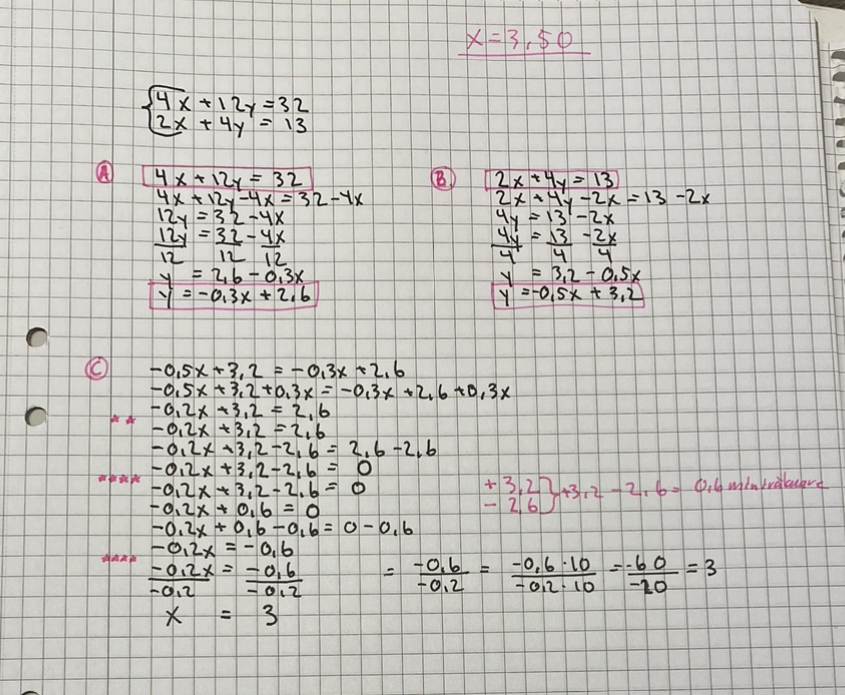 x=3,50
4x+12y=32
2x+4y=13
A
4x+12y=32
4x+12y-4x=32-4x
12y=32-4x
12y/12=32/12-4x/12
y=2,6-0,3x
y=-0,3x+2,6
B
2x+4y=13
2x+4y-2x=13-2x
4y=13-2x
4y/4=13/4-2x/4
y=3,2-0,5x
y=-0,5x+3,2
C
-0,5x+3,2=-0,3x+2,6
-0,5x+3,2+0,3x=-0,3x+2,6+0,3x
-0,2x+3,2=2,6
**
-0,2x+3,2=2,6
-0,2x+3,2-2,6=2,6-2,6
-0,2x+3,2-2,6=0
****
-0,2x+3,2-2,6=0
+3,2
-2,6
}+3,2-2,6=0,6
-0,2x+0,6=0
-0,2x+0,6-0,6=0-0,6
-0,2x=-0,6
****
-0,2x/-0,2=-0,6/-0,2 =-0,6/-0,2=-0,6·10/-0,2·10=-60/-20=3
x=3